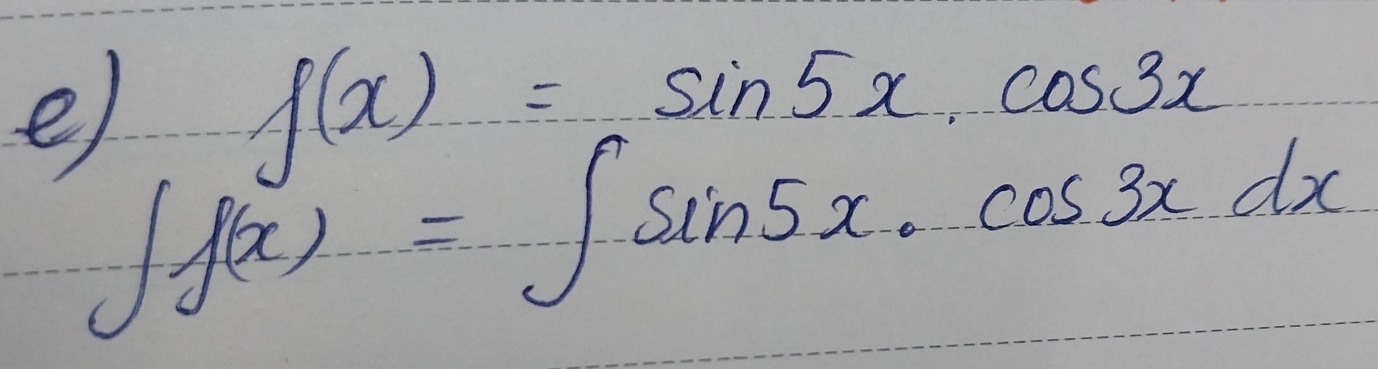 e) f(x) = sin5x. cos3x
∫f(x) = ∫sin5x. cos3x dx